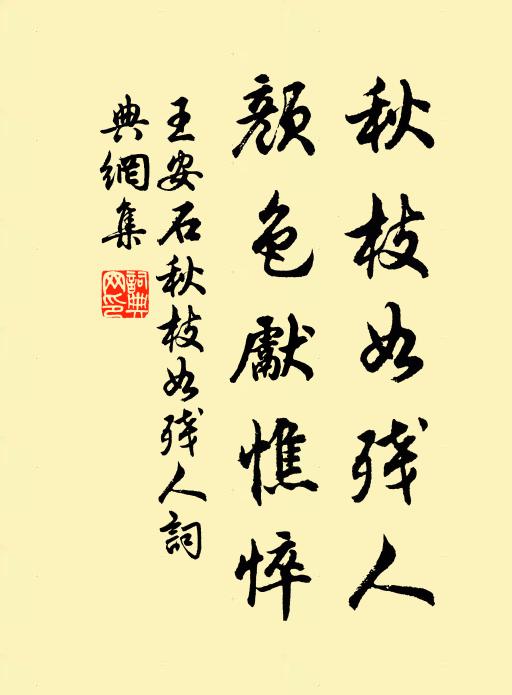 秋枝如残人
顏色獻憔悴
王安石秋枝如残人詞
典網集
詞典網印